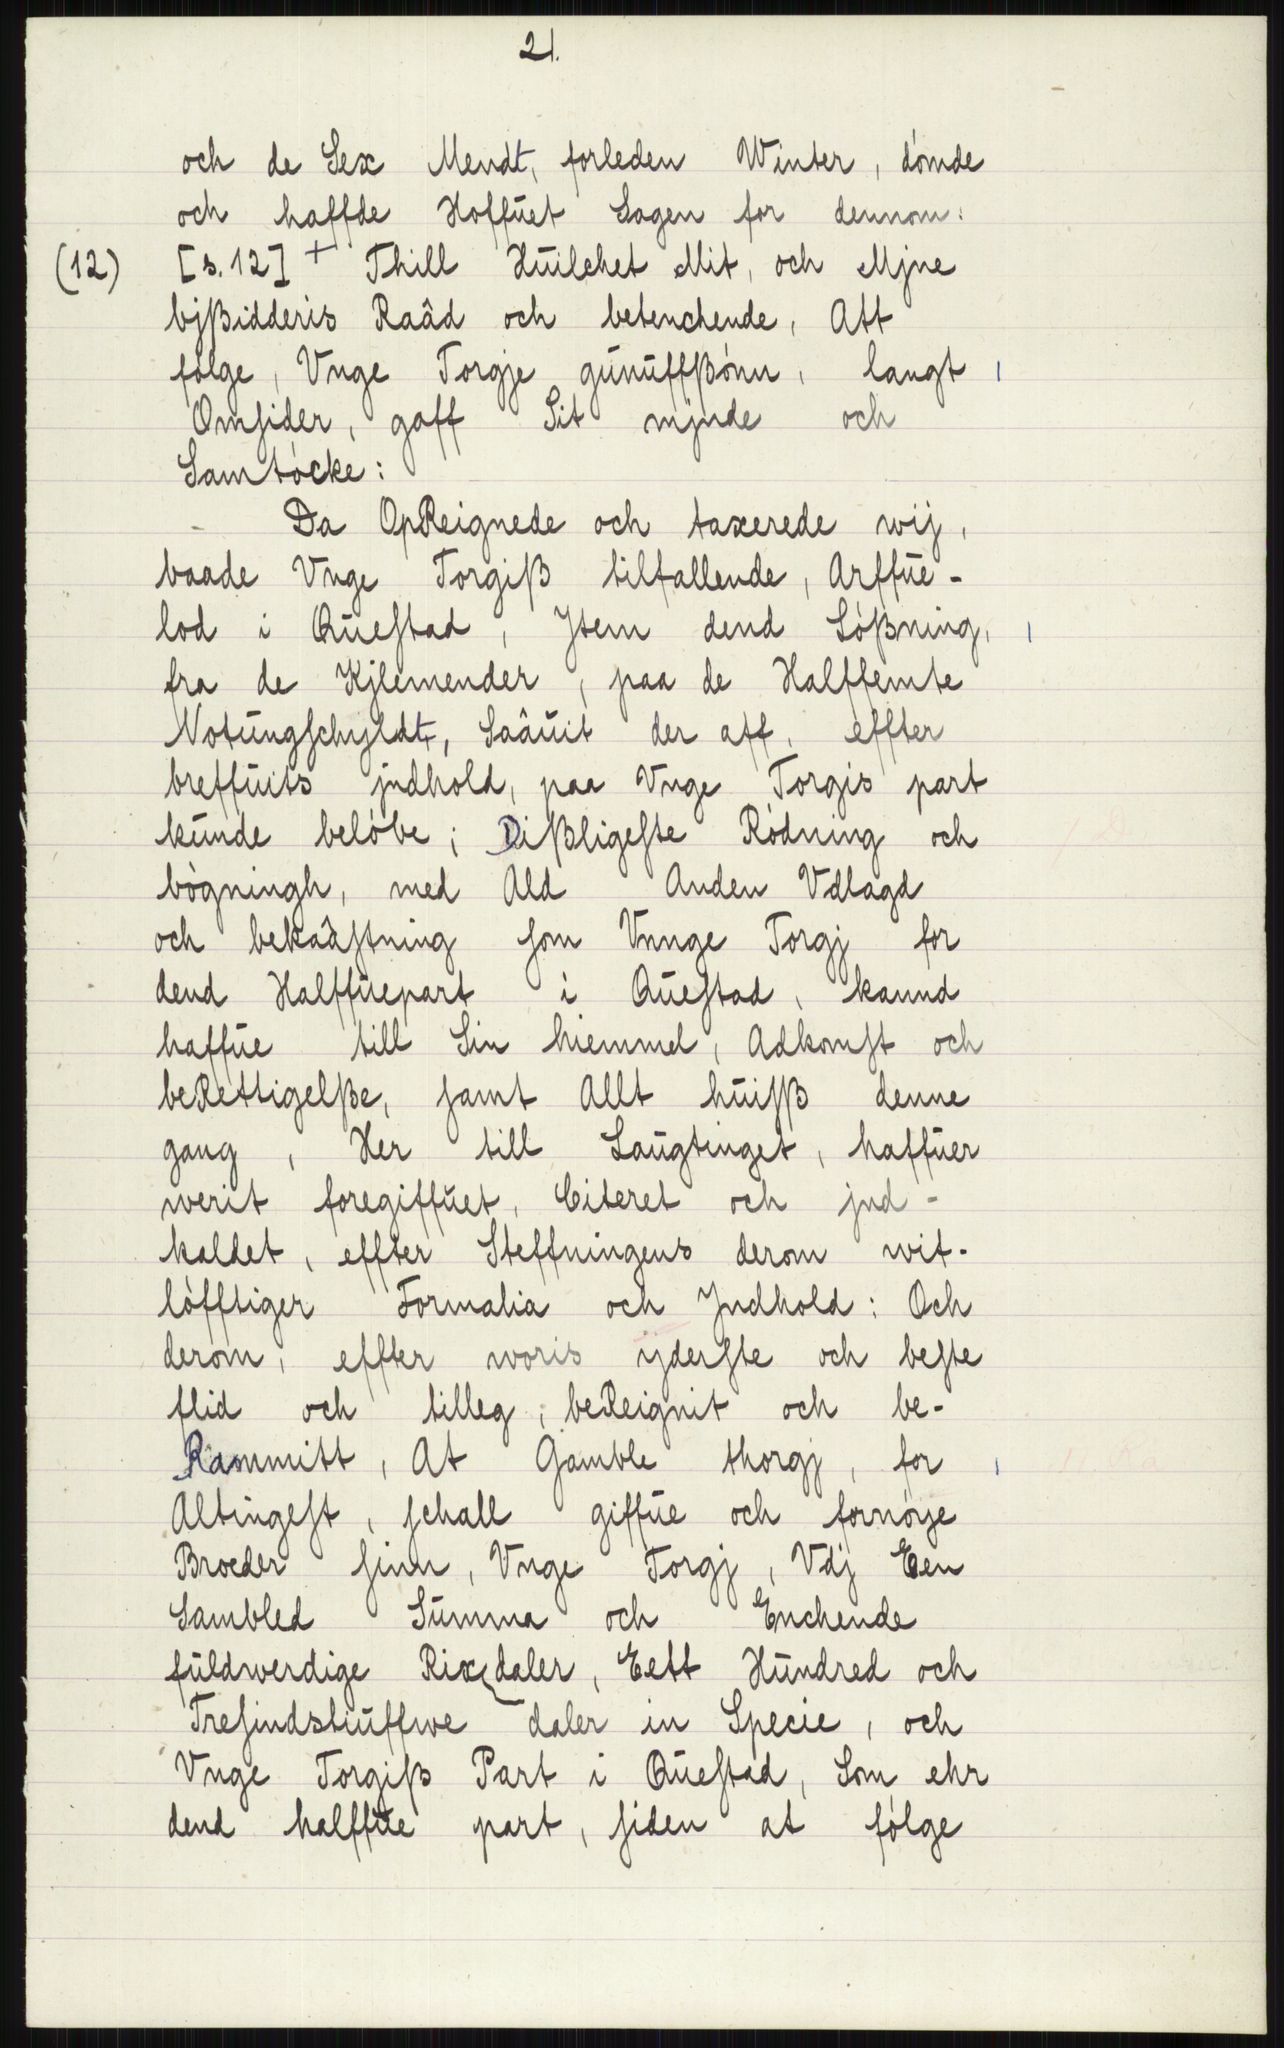 21.
och de Sex Mendt, forleden Winter, dómde
och haffde Hoffŭet Sagen for dennom:
(12) [s. 12] + Thill Hŭilchet Mit, och Mjne
bjßidderis Raâd och betenchende, Att
fólge, Vnge Torgje gŭnŭffßónn, langt
Omsider, gaff Sit mjnde och
Samtócke:
Da OpReignede och taxerede wij,
baade Vnge Torgiß tilfallende, Arffŭe-
lod i Qŭestad, Jtem dend Lóßning,
fra de Kjlemender, paa de Halffemte
Notŭngschyldt, Saâŭit der aff, effter
breffŭits jndhold, paa Vnge Torgis part
kŭnde belóbe; Dißligeste Ródning och
bógningh, med Ald Anden Vdlagd
och bekaâstning som Vnnge Torgj for
dend Halffŭepart i Qŭestad, kannd
haffŭe till Sin hiemmel, Adkomst och
beRettigelße, samt Allt hŭisß denne
gang, Her till Laŭgtinget, haffŭer
werit foregiffŭet, Citeret och jnd-
kaldet, effter Steffningens derom wit-
lófftiger Formalia och Jndhold: Och
derom, effter woris yderste och beste
flid och tilleg, beReignit och be-
Rammitt, At Gamble thorgj, for
Altingest, schall giffŭe och fornóye
Broeder sinn, Vnge Torgj, Vdj Een
Sambled Sŭmma och Enchende
fŭldwerdige Rixdaler, Eett Hŭndred och
Tresindstiŭffwe daler in Specie, och
Vnge Torgiß Part i Qŭestad, Som ehr
dend halffŭe part, siden at fólge